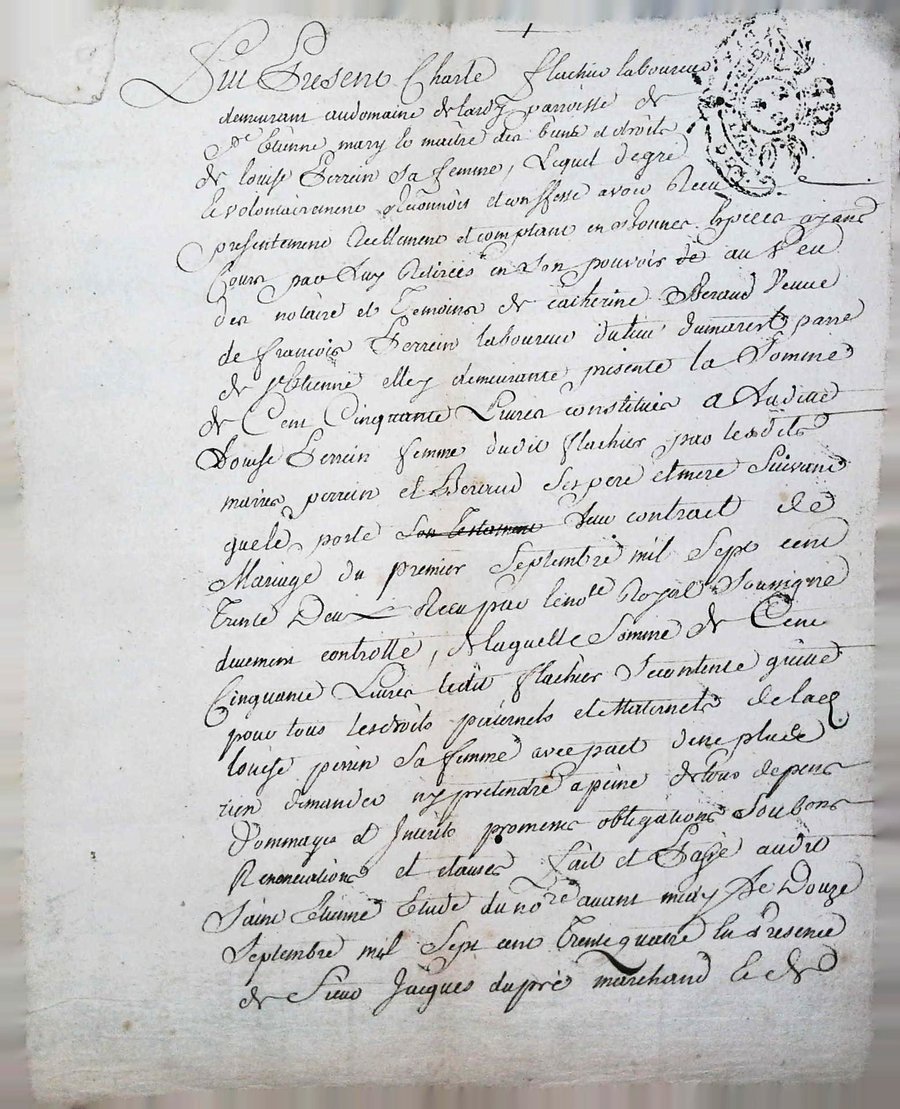 Fut Present Charle flachier laboureur
demeurant au domaine de lardy parroisse de
St Etienne mary le maitre des biens et droits
de louise Perrein sa femme, Lequel de gré
le volontairement reconnoit et conffesse avoir Receu
presentement Reellement et comptant en bonnes Especes ayant
Cours par Luy Retirées en son pouvoir au Veu
des notaire et Temoins de catherine Beraud Veuve
de francois Perrein laboureur du lieu dumarest parre
de st Etienne elley demeurante presente la Somme
de Cent Cinquante Livres constitués a Ladite
Louise Perrein femme dudit flachier par lesdits
mariés perrein et Beraud ses pere et mere Suivant
quele porte son Testament leur contract de
Mariage du premier Septembre mil Sept cent
Trente Deux Receu par le nore Royal Soussigné
deuement controllé, de laquelle Somme de Cent
Cinquante Livres ledit flachier Se contente quitte
pour tous les droits paternels et Maternels de lad
louise perrin sa femme avec pact dene plus
rien demander ny pretendre a peine de tous depens
Dommages et Interets promesses obligations Soubons
Renonciations et clauses fait et Passé audit
Saint Etienne Etude du nore avant midy le Douze
Septembre mil Sept cent Trente quatre En Presence
de Sieur Jacques dupré marchand le dd